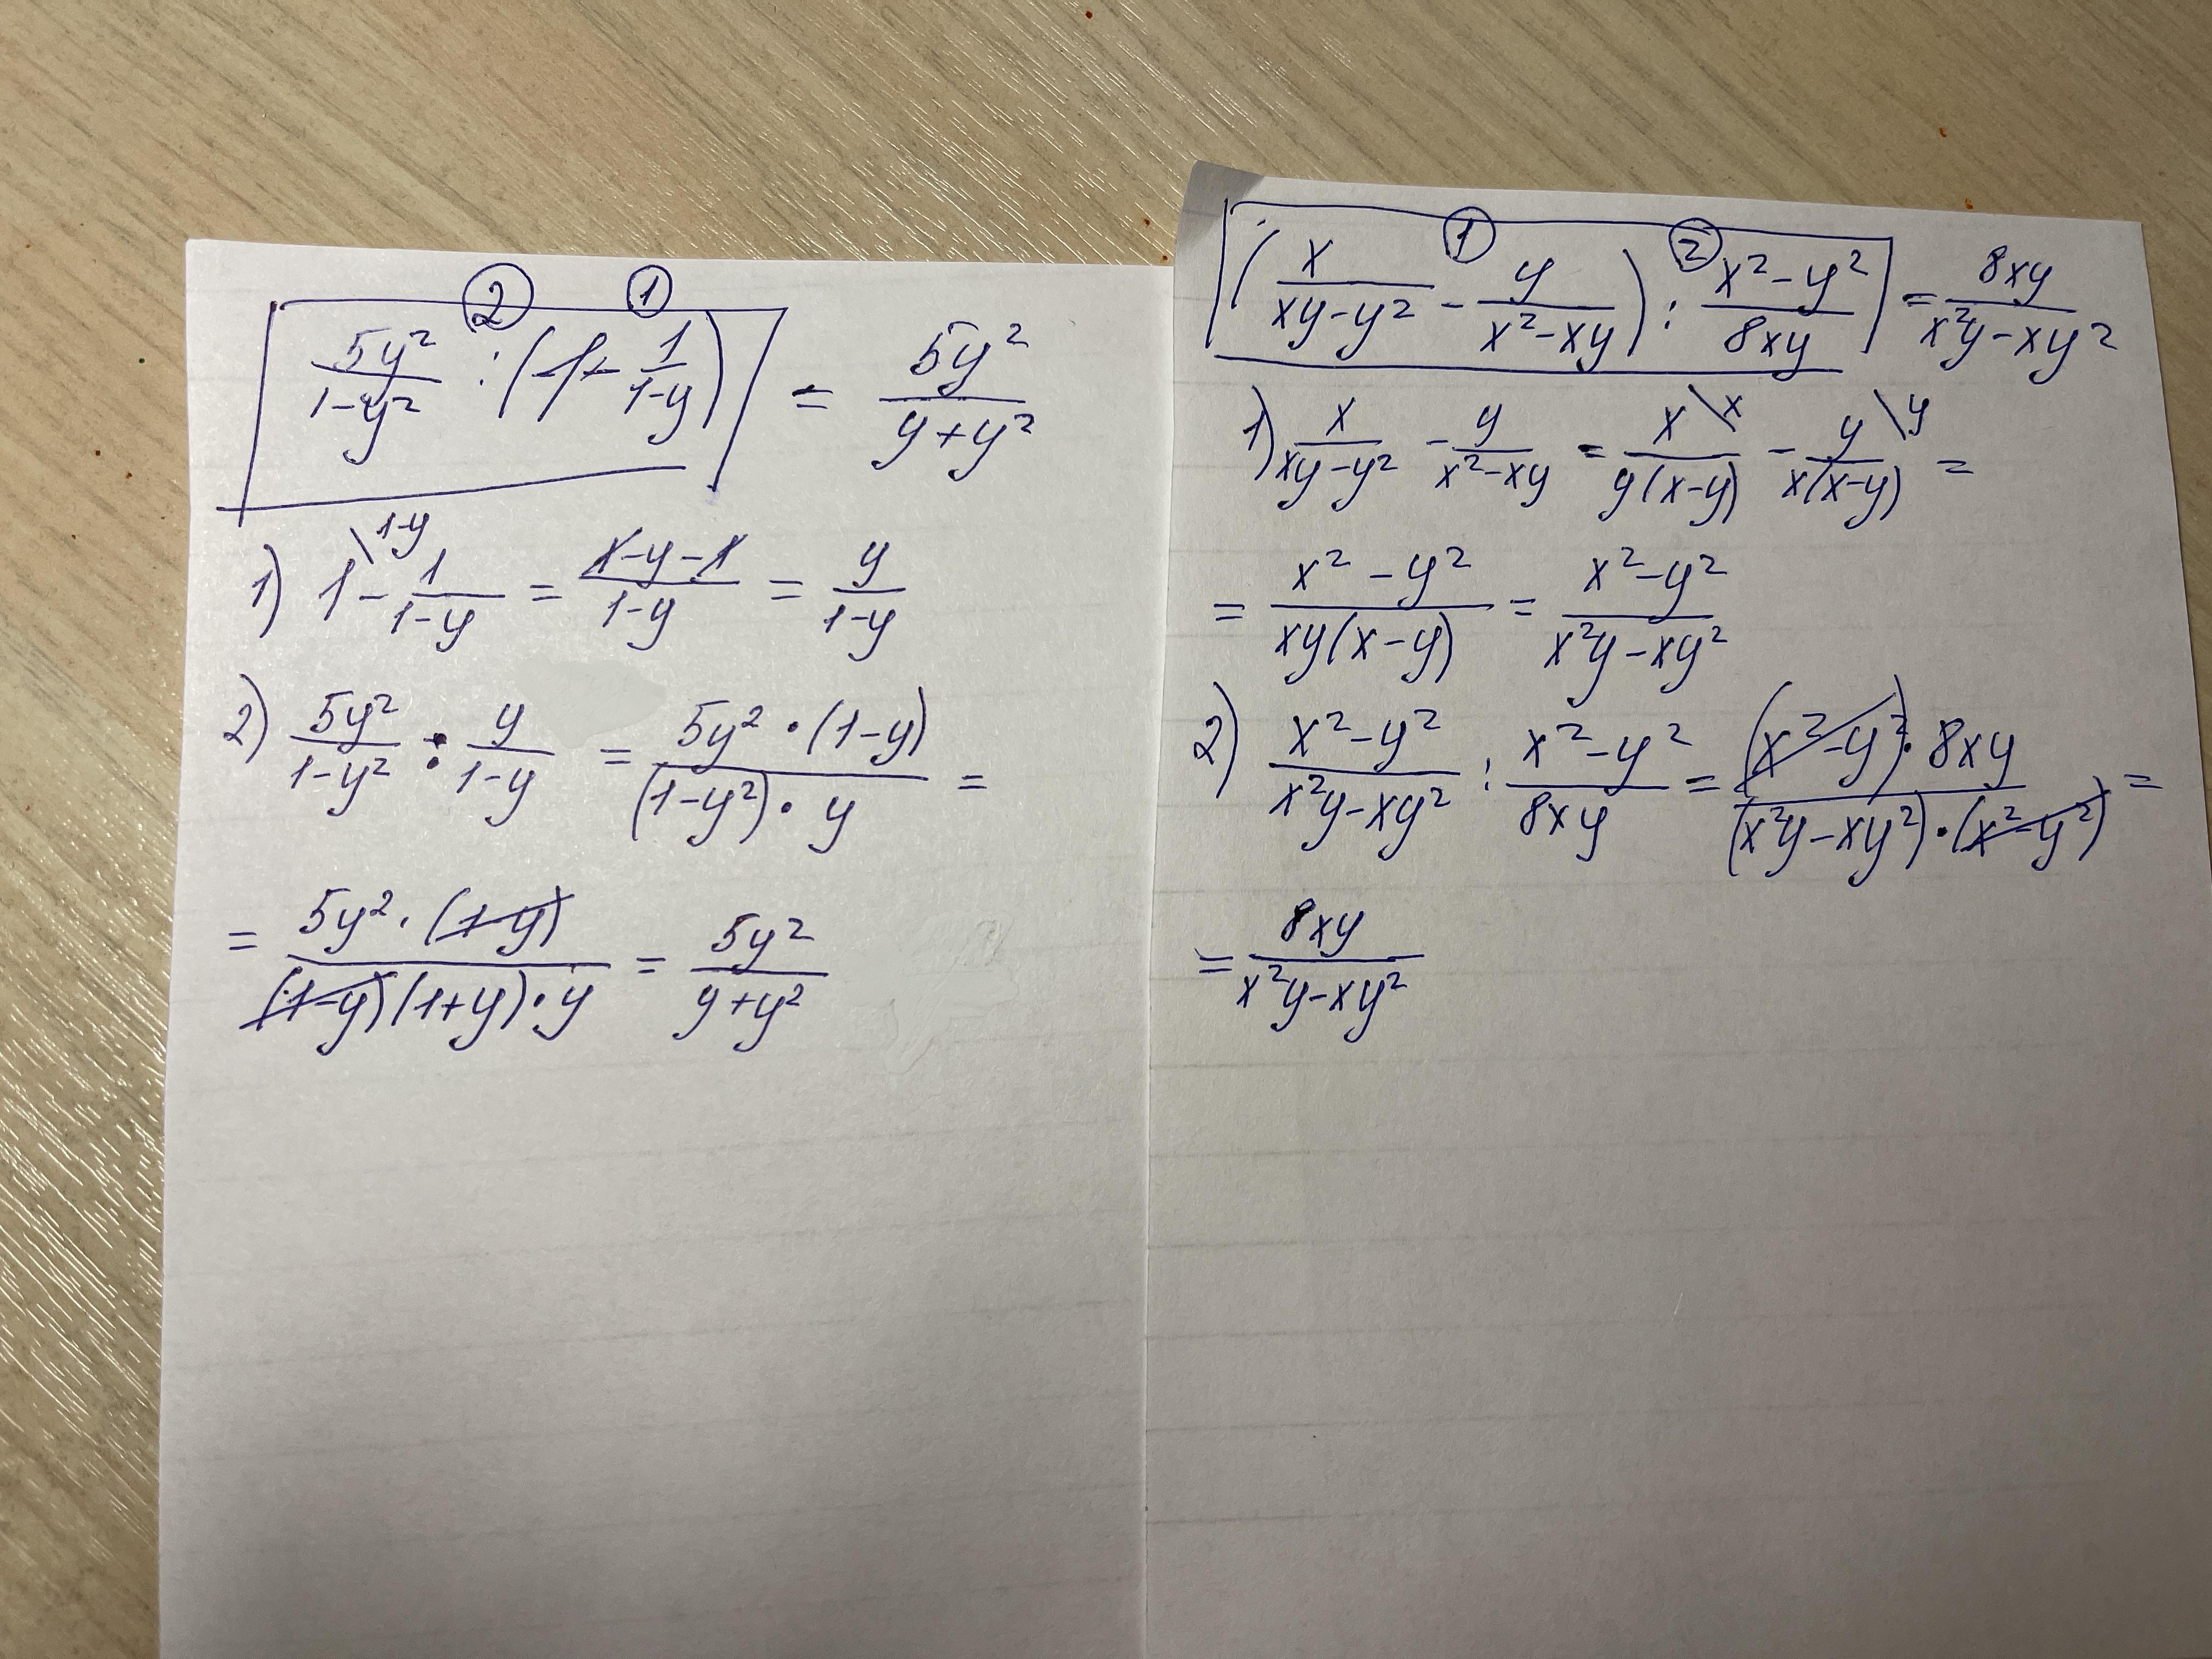 ② ①
5y²/(1-y²) : (1 - 1/(1-y)) = 5y²/(y+y²)
1) 1\1-y - 1/(1-y) = (1-y-1)/(1-y) = y/(1-y)
2) 5y²/(1-y²) : y/(1-y) = (5y²·(1-y))/((1-y²)·y) =
= (5y²·(1-y))/((1-y)(1+y)·y) = 5y²/(y+y²)
① ②
(x/(xy-y²) - y/(x²-xy)) : (x²-y²)/(8xy) = 8xy/(x²y-xy²)
1) x/(xy-y²) - y/(x²-xy) = x\x/(y(x-y)) - y\y/(x(x-y)) =
= (x²-y²)/(xy(x-y)) = (x²-y²)/(x²y-xy²)
2) (x²-y²)/(x²y-xy²) : (x²-y²)/(8xy) = ((x²-y²)·8xy)/((x²y-xy²)·(x²-y²)) =
= 8xy/(x²y-xy²)